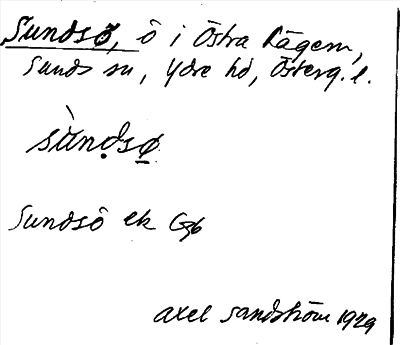 Sundsö, ö i Östra Lägern,
Sunds sn, Ydre hd, Österg. l.
sùnḍsø̱
Sundsö ek Gb
Axel Sandström 1929